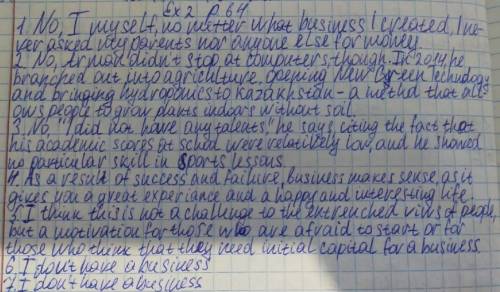 Ex 2 p.64
1. No, I myself, no metter what business I created, I ne-
ver asked my parents nor anyone else for money.
2. No, Arman didn't stop at computers though. In 2014 he
branched out into agriculture, opening New Green Technology
and bringing hydroponics to kazakhstan - a methd that all-
ows people to grow plants indoors without soil.
3. No, "I did not have any talents," he says, citing the fact that
his academic scores at school were relatively low, and he showed
no particular skill in sports lessons.
4. As a result of success and failure, business makes sense, as it
gives you a great experiance and a happy and interesting life.
5. I think this is not a challenge to the entrenched views of people,
but a motivation for those who are afraid to start or for
those who think that they need initial capital for a business
6. I don't have a business
7. I don't have a business